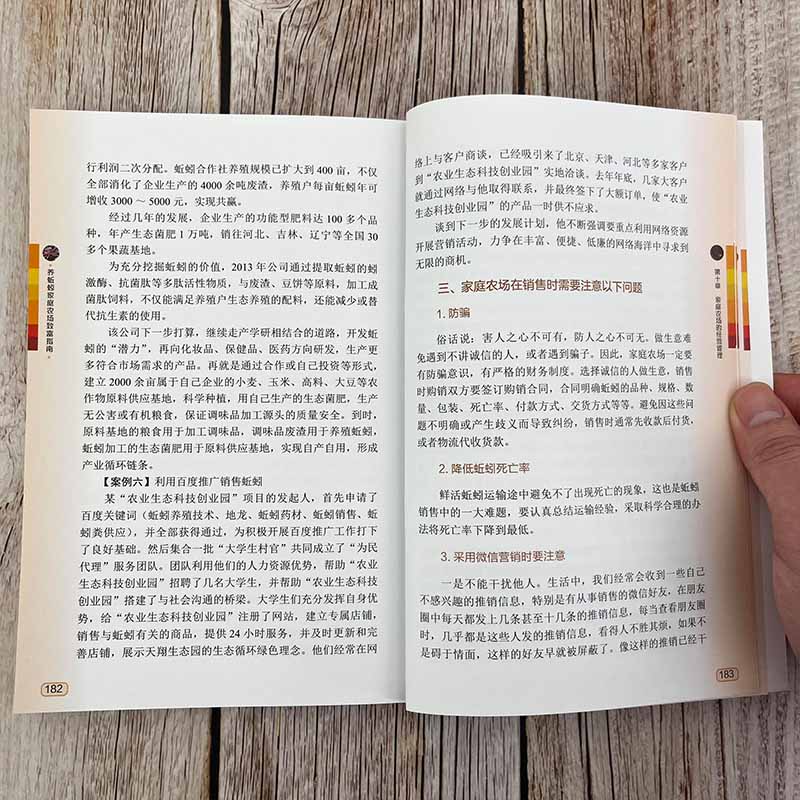 行利润二次分配。蚯蚓合作社养殖规模已扩大到 400 亩，不仅
全部消化了企业生产的 4000 余吨废渣，养殖户每亩蚯蚓年可
增收 3000 ～ 5000 元，实现共赢。
经过几年的发展，企业生产的功能型肥料达 100 多个品
种，年产生态菌肥 1 万吨，销往河北、吉林、辽宁等全国 30
多个果蔬基地。
为充分挖掘蚯蚓的价值，2013 年公司通过提取蚯蚓的蚓
激酶、抗菌肽等多肽活性物质，与废渣、豆饼等原料，加工成
菌肽饲料，不仅能满足养殖户生态养殖的配料，还能减少或替
代抗生素的使用。
该公司下一步打算，继续走产学研相结合的道路，开发蚯
蚓的“潜力”，再向化妆品、保健品、医药方向研发，生产更
多符合市场需求的产品。再就是通过合作或自己投资等形式，
建立 2000 余亩属于自己企业的小麦、玉米、高粱、大豆等农
作物原料供应基地，科学种植，用自己生产的生态菌肥，生产
无公害或有机粮食，保证调味品加工源头的质量安全。到时，
原料基地的粮食用于加工调味品，调味品废渣用于养殖蚯蚓，
蚯蚓加工的生态菌肥用于原料供应基地，实现自产自用，形成
产业循环链条。
【案例六】利用百度推广销售蚯蚓
某“农业生态科技创业园”项目的发起人，首先申请了
百度关键词（蚯蚓养殖技术、地龙、蚯蚓药材、蚯蚓销售、蚯
蚓粪供应），并全部获得通过，为积极开展百度推广工作打下
了良好基础。然后集合一批“大学生村官”共同成立了“为民
代理”服务团队。团队利用他们的人力资源优势，帮助“农业
生态科技创业园”招聘了几名大学生，并帮助“农业生态科技
创业园”搭建了与社会沟通的桥梁。大学生们充分发挥自身优
势，给“农业生态科技创业园”注册了网站，建立专属店铺，
销售与蚯蚓有关的商品，提供 24 小时服务，并及时更新和完
善店铺，展示天翔生态园的生态循环绿色理念。他们经常在网
182
养蚯蚓家庭农场致富指南
络上与客户商谈，已经吸引来了北京、天津、河北等多家客户
到“农业生态科技创业园”实地洽谈。去年年底，几家大客户
就通过网络与他取得联系，并最终签下了大额订单，使“农业
生态科技创业园”的产品一时供不应求。
谈到下一步的发展计划，他不断强调要重点利用网络资源
开展营销活动，力争在丰富、便捷、低廉的网络海洋中寻求到
无限的商机。
三、家庭农场在销售时需要注意以下问题
1. 防骗
俗话说：害人之心不可有，防人之心不可无。做生意难
免遇到不讲诚信的人，或者遇到骗子。因此，家庭农场一定要
有防骗意识，有严格的财务制度。选择诚信的人做生意，销售
时购销双方要签订购销合同，合同明确蚯蚓的品种、规格、数
量、包装、死亡率、付款方式、交货方式等等。避免因这些问
题不明确或产生歧义而导致纠纷，销售时通常先收款后付货，
或者物流代收货款。
2. 降低蚯蚓死亡率
鲜活蚯蚓运输途中避免不了出现死亡的现象，这也是蚯蚓
销售中的一大难题，要认真总结运输经验，采取科学合理的办
法将死亡率下降到最低。
3. 采用微信营销时要注意
一是不能干扰他人。生活中，我们经常会收到一些自己
不感兴趣的推销信息，特别是有从事销售的微信好友，在朋友
圈中每天都发上几条甚至十几条的推销信息，每当查看朋友圈
时，几乎都是这些人发的推销信息，看得人不胜其烦，如果不
是碍于情面，这样的好友早就被屏蔽了。像这样的推销已经干
183
第十章 家庭农场的经营管理